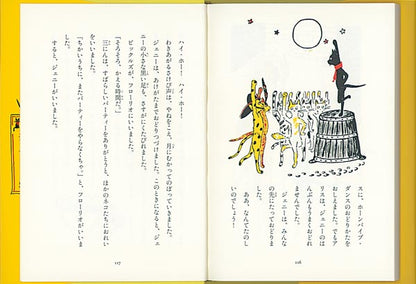 スに、ホーンパイプ・
ダンスのおどりかたを
おしえました。でもア
リスは、ジェニーのほ
どんどんうまくおどれ
ませんでした。
ジェニーは、みんな
の先にたっておどりま
した。
ああ、なんてたのし
いのでしょう!
116
ハイ・ホー! ハイ・ホー!
わきあがるさけび声は、やねをこえ、月にむかってのぼっていきました。
ジェニーは、あけがたまでおどりつづけました。このときになると、ジェ
ニーの小さな黒い足も、さすがにくたびれました。
ピックルズが、フローリオにいいました。
「そろそろ、かえる時間だ。」
三にんは、すばらしいパーティーをありがとうと、ほかのネコたちにおれい
をいいました。
「ちかいうちに、またパーティーをやらなくちゃ。」と、フローリオがいいま
した。
すると、ジェニーがいいました。
117